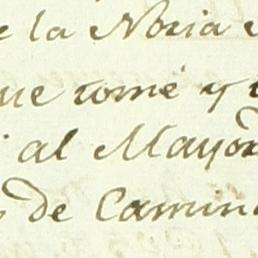 e la Noria
ue tomé y
al Mayor
s de Camin